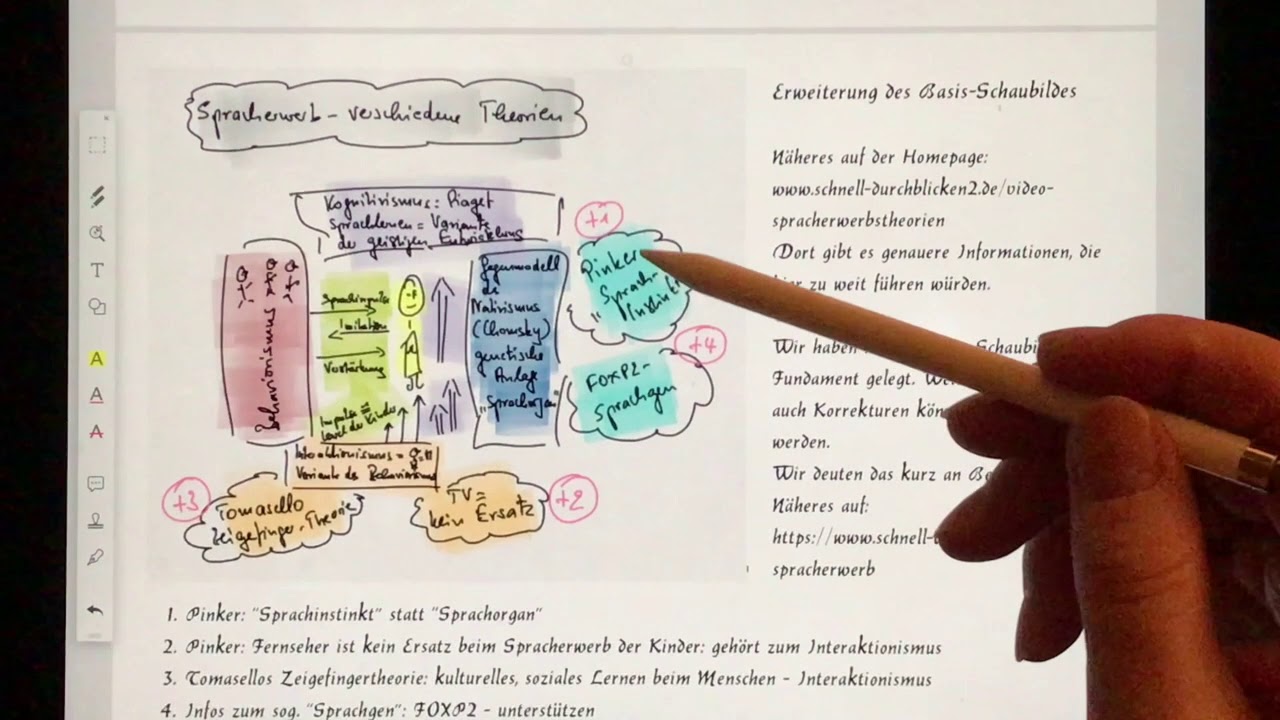 Spracherwerb - verschiedene Theorien
Kognitivismus: Piaget
Sprachlernen = Variante
der geistigen Entwicklung
Behaviorismus
Sprachimpulse
Imitation
Verstärkung
Impulse
Level des Kindes
Gegenmodell
des
Nativismus
(Chomsky)
genetische
Anlage
"Sprachorgan"
+1
Pinker
Sprach-
"Instinkt"
+4
FOXP2-
Sprachgen
Interaktionismus =
Variante des Behaviorismus
+3
Tomasello
Zeigefinger-Theorie
TV =
kein Ersatz
+2
Erweiterung des Basis-Schaubildes
Näheres auf der Homepage:
www.schnell-durchblicken2.de/video-
spracherwerbstheorien
Dort gibt es genauere Informationen, die
zu weit führen würden.
Wir haben Schaubi
Fundament gelegt.
auch Korrekturen kön
werden.
Wir deuten das kurz an
Näheres auf:
https://www.schnell-
spracherwerb
1. Pinker: "Sprachinstinkt" statt "Sprachorgan"
2. Pinker: Fernseher ist kein Ersatz beim Spracherwerb der Kinder: gehört zum Interaktionismus
3. Tomasellos Zeigefingertheorie: kulturelles, soziales Lernen beim Menschen - Interaktionismus
4. Infos zum sog. "Sprachgen": FOXP2 - unterstützen